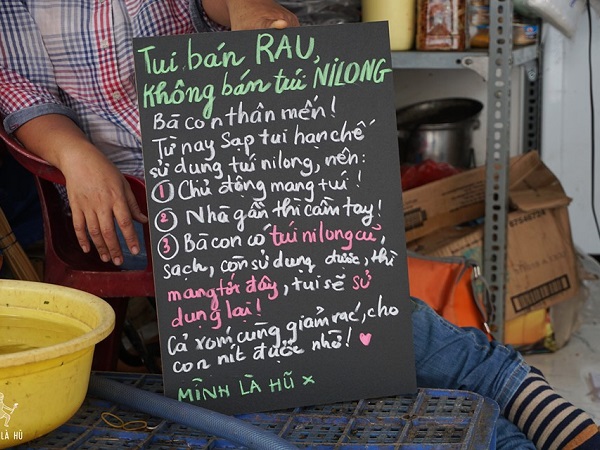 Tui bán RAU,
không bán túi NILONG
Bà con thân mến!
Từ nay Sạp tui hạn chế
sử dụng túi nilong, nên:
1 Chủ động mang túi!
2 Nhà gần thì cầm tay!
3 Bà con có túi nilong cũ,
sạch, còn sử dụng được, thì
mang tới đây, tui sẽ sử
dụng lại!
Cả xóm cùng giảm rác, cho
con nít được nhờ!
MÌNH LÀ HŨ x
LÀ HŨ